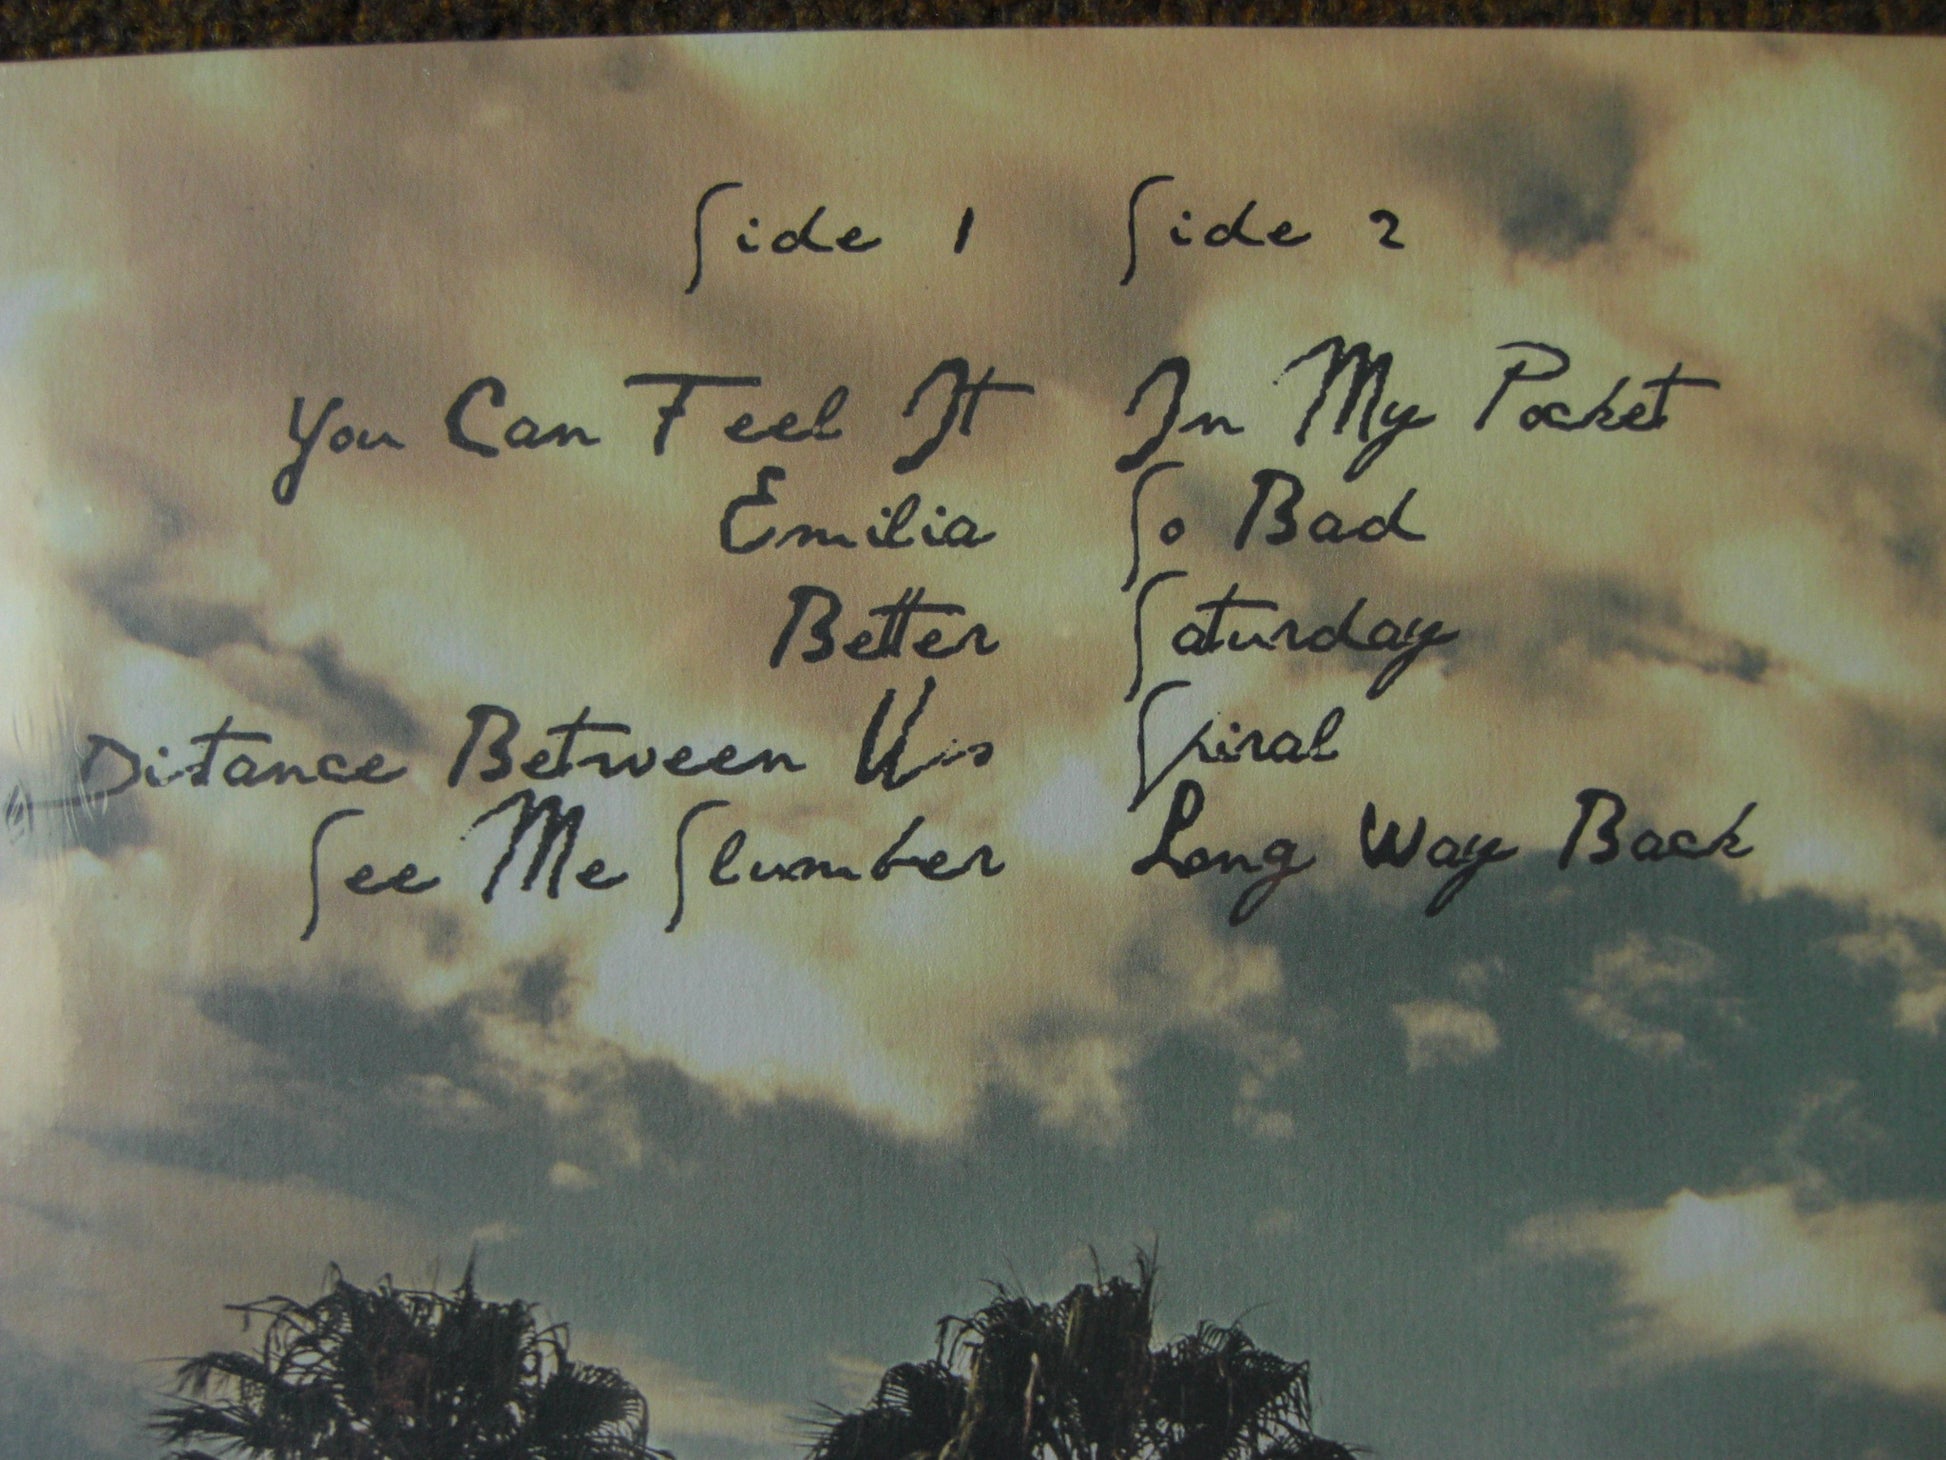 Side 1
You Can Feel It
Emilia
Better
Distance Between Us
See Me Slumber
Side 2
In My Pocket
So Bad
Saturday
Spiral
Long Way Back